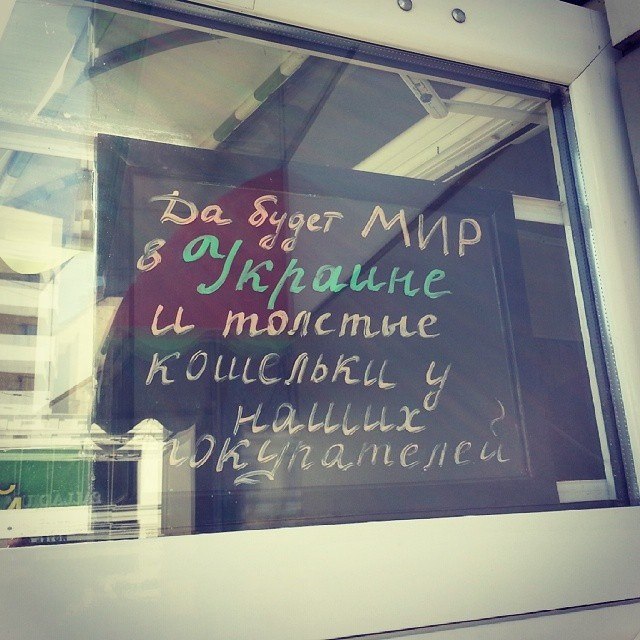 Да будет МИР
в Украине
и толстые
кошельки у
наших
покупателей